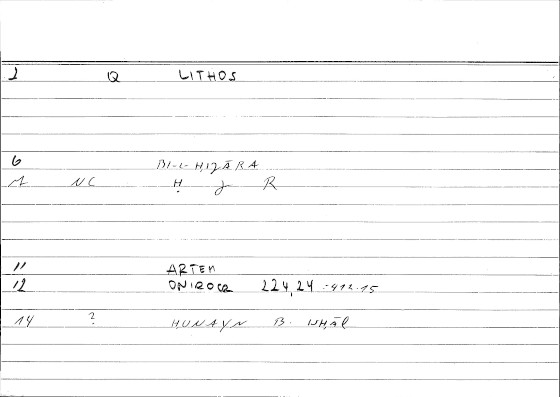 1 Q LITHOS
6 BI-L-ḤIJĀRA
NC Ḥ J R
11 ARTEM
12 ONIROCR 224,24 = 412.15
14 ? ḤUNAYN B. ISḤĀQ